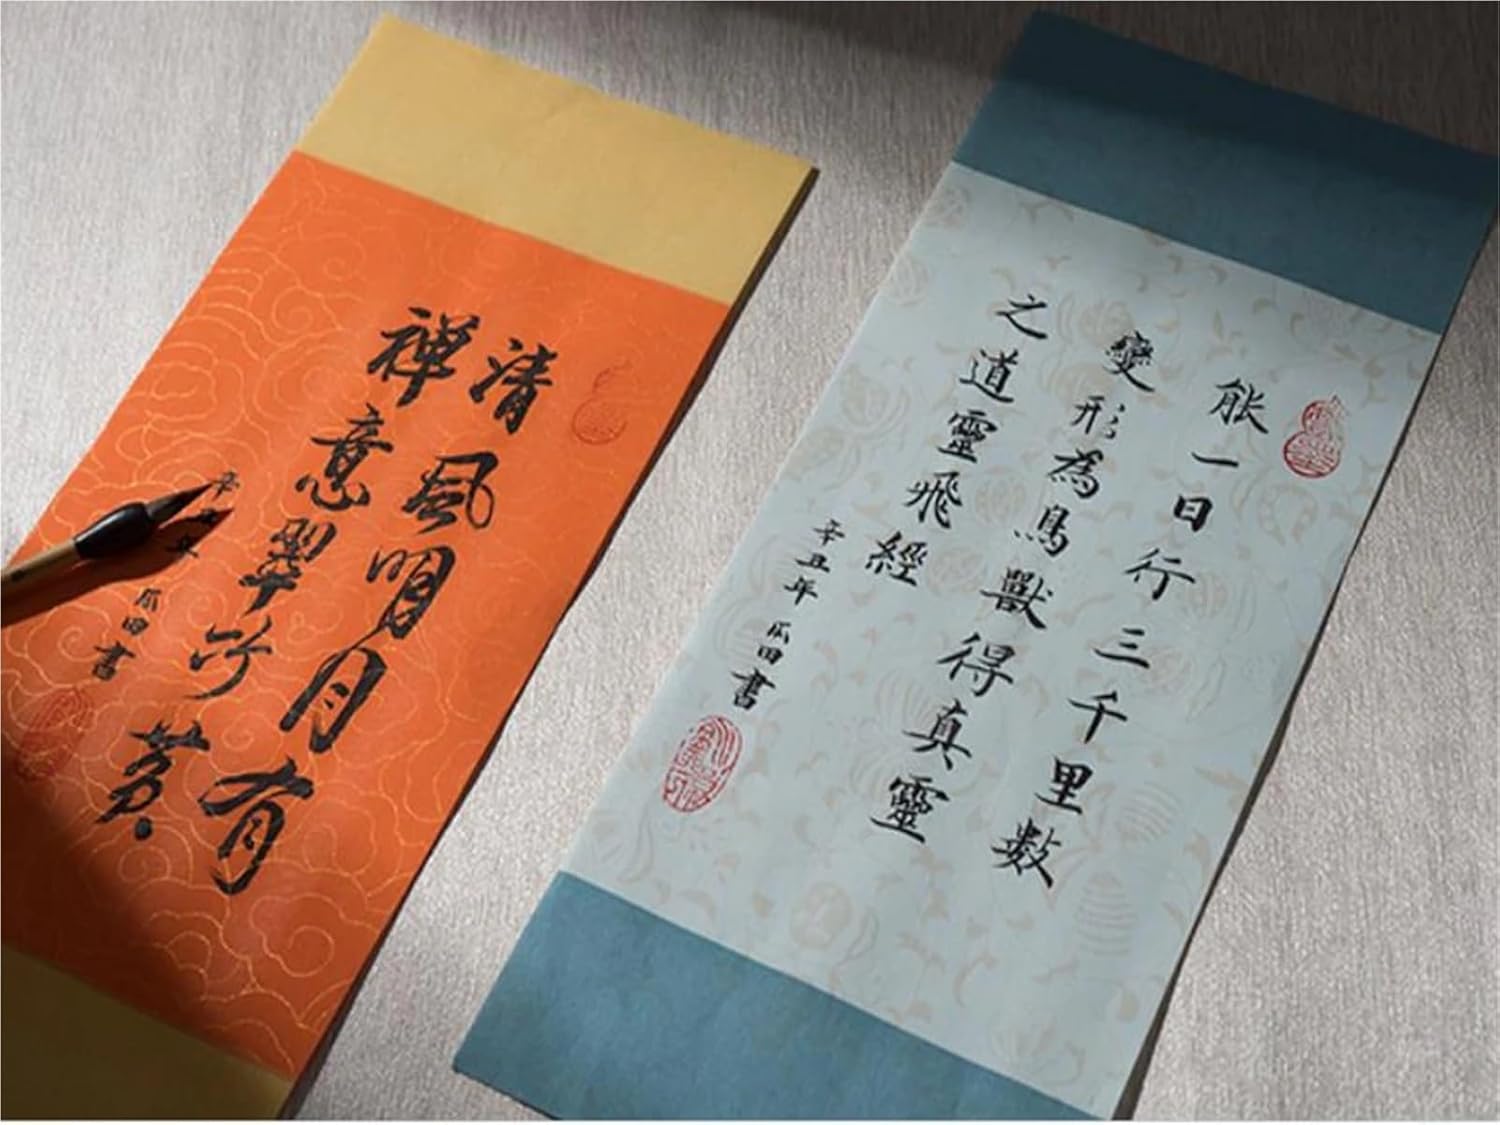 清風明月有
禅意翠竹
辛 年 瓜田書
能一日行三千里數
變形為鳥獸得真靈
之道靈飛經
辛丑年 瓜田書